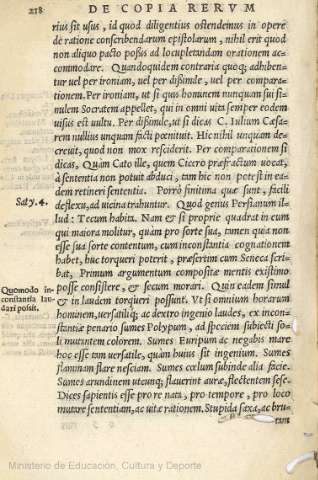 218 DE COPIA RERVM
rius sit usus, id quod diligentius ostendemus in opere
de ratione conscribendarum epistolarum, nihil erit quod
non aliquo pacto possis ad locupletandam orationem ac-
commodare. Quandoquidem contraria quoque adhiben-
tur uel per ironiam, uel per dissimile, uel per compara-
tionem. Per ironiam, ut si quis hominem nunquam sui si-
milem Socratem appellet, qui in omni uita semper eodem
uisus est uultu. Per dissimile, ut si dicas C. Iulium Cæsa-
rem nullius unquam facti pœnituit. Hic nihil unquam de-
creuit, quod non mox resciderit. Per comparationem si
dicas, Quàm Cato ille, quem Cicero præfractum uocat,
à sententia non potuit abduci, tam hic non potest in ea-
dem retineri sententia. Porrò finitima quæ sunt, facili
Saty. 4. deflexu, ad uicina trahuntur. Quod genus Persianum il-
lud: Tecum habita. Nam & si propriè quadrat in eum
qui maiora molitur, quàm pro sorte sua, tamen quia non
esse sua sorte contentum, cum inconstantia cognationem
habet, huc torqueri poterit, præsertim cum Seneca scri-
bat, Primum argumentum compositæ mentis existimo
Quomodo in- posse consistere, & secum morari. Quin eadem simul
constantia lau- & in laudem torqueri possunt. Vt si omnium horarum
dari possit. hominem, uersatiliq; ac dextro ingenio laudes, ex incon-
stantiæ penario sumes Polypum, ad speciem subiecti so-
li mutantem colorem. Sumes Euripum ac negabis mare
hoc esse tam uersatile, quàm huius sit ingenium. Sumes
flammam stare nesciam. Sumes cœlum subinde alia facie.
Sumes arundinem utcunq; flauerint auræ, flectentem sese.
Dices sapientis esse pro re nata, pro tempore, pro loco
mutare sententiam, ac uitæ rationem. Stupida saxa, ac bru-
tam
Ministerio de Educación, Cultura y Deporte